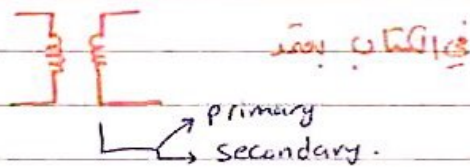 في الكتاب
primary
secondary.